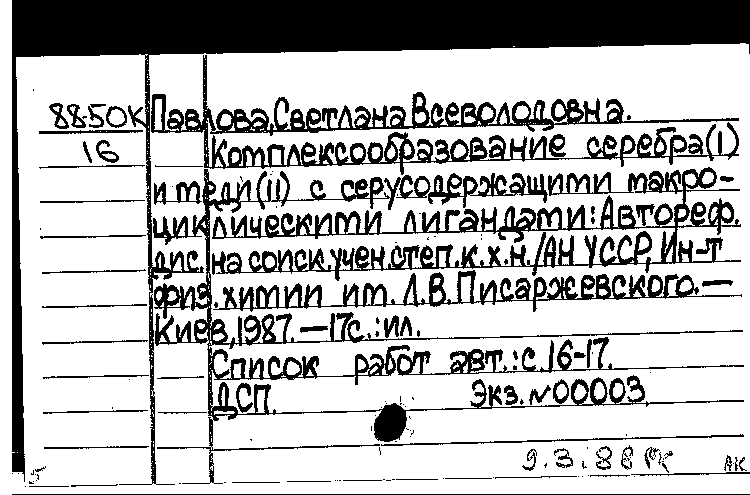 88-50К Павлова, Светлана Всеволодовна.
16 Комплексообразование серебра(I)
и меди(II) с серусодержащими макро-
циклическими лигандами: Автореф.
дис. на соиск. учен. степ. к.х.н. /АН УССР, Ин-т
физ. химии им. Л.В. Писаржевского. —
Киев, 1987. — 17с.: ил.
Список работ авт.: с. 16-17.
ДСП. Экз. №00003.
9.3.88 РК АК
5